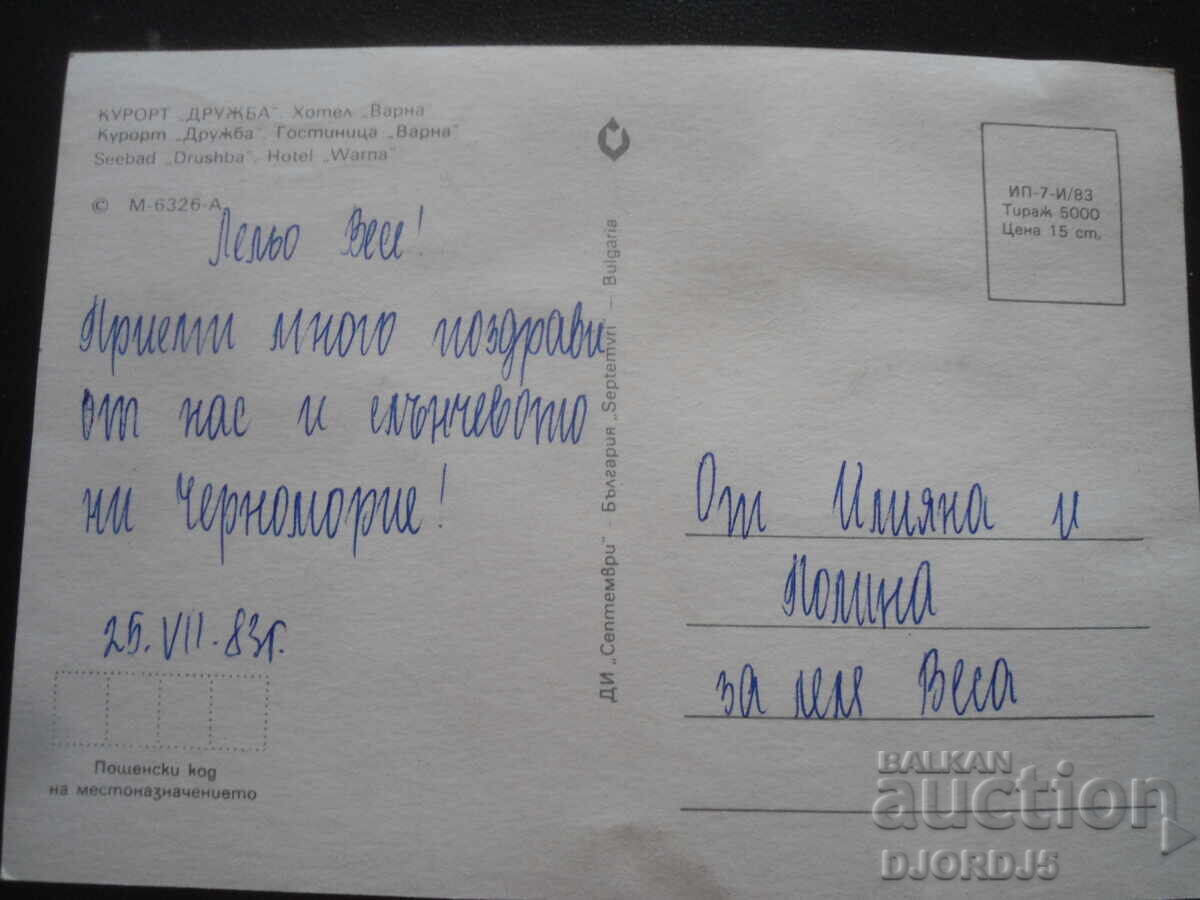 КУРОРТ „ДРУЖБА". Хотел „Варна"
Курорт „Дружба". Гостиница „Варна"
Seebad „Drushba". Hotel „Warna"
© М-6326-А
Лельо Весе!
Приеми много поздрави
от нас и слънчевото
ни Черноморие!
25.VII.83г.
Пощенски код
на местоназначението
ДИ „Септември" - България „Septemvri" – Bulgaria
ИП-7-И/83
Тираж 5000
Цена 15 ст.
От Илияна и
Полина
за леля Веса
BALKAN
auction
DJORDJ5